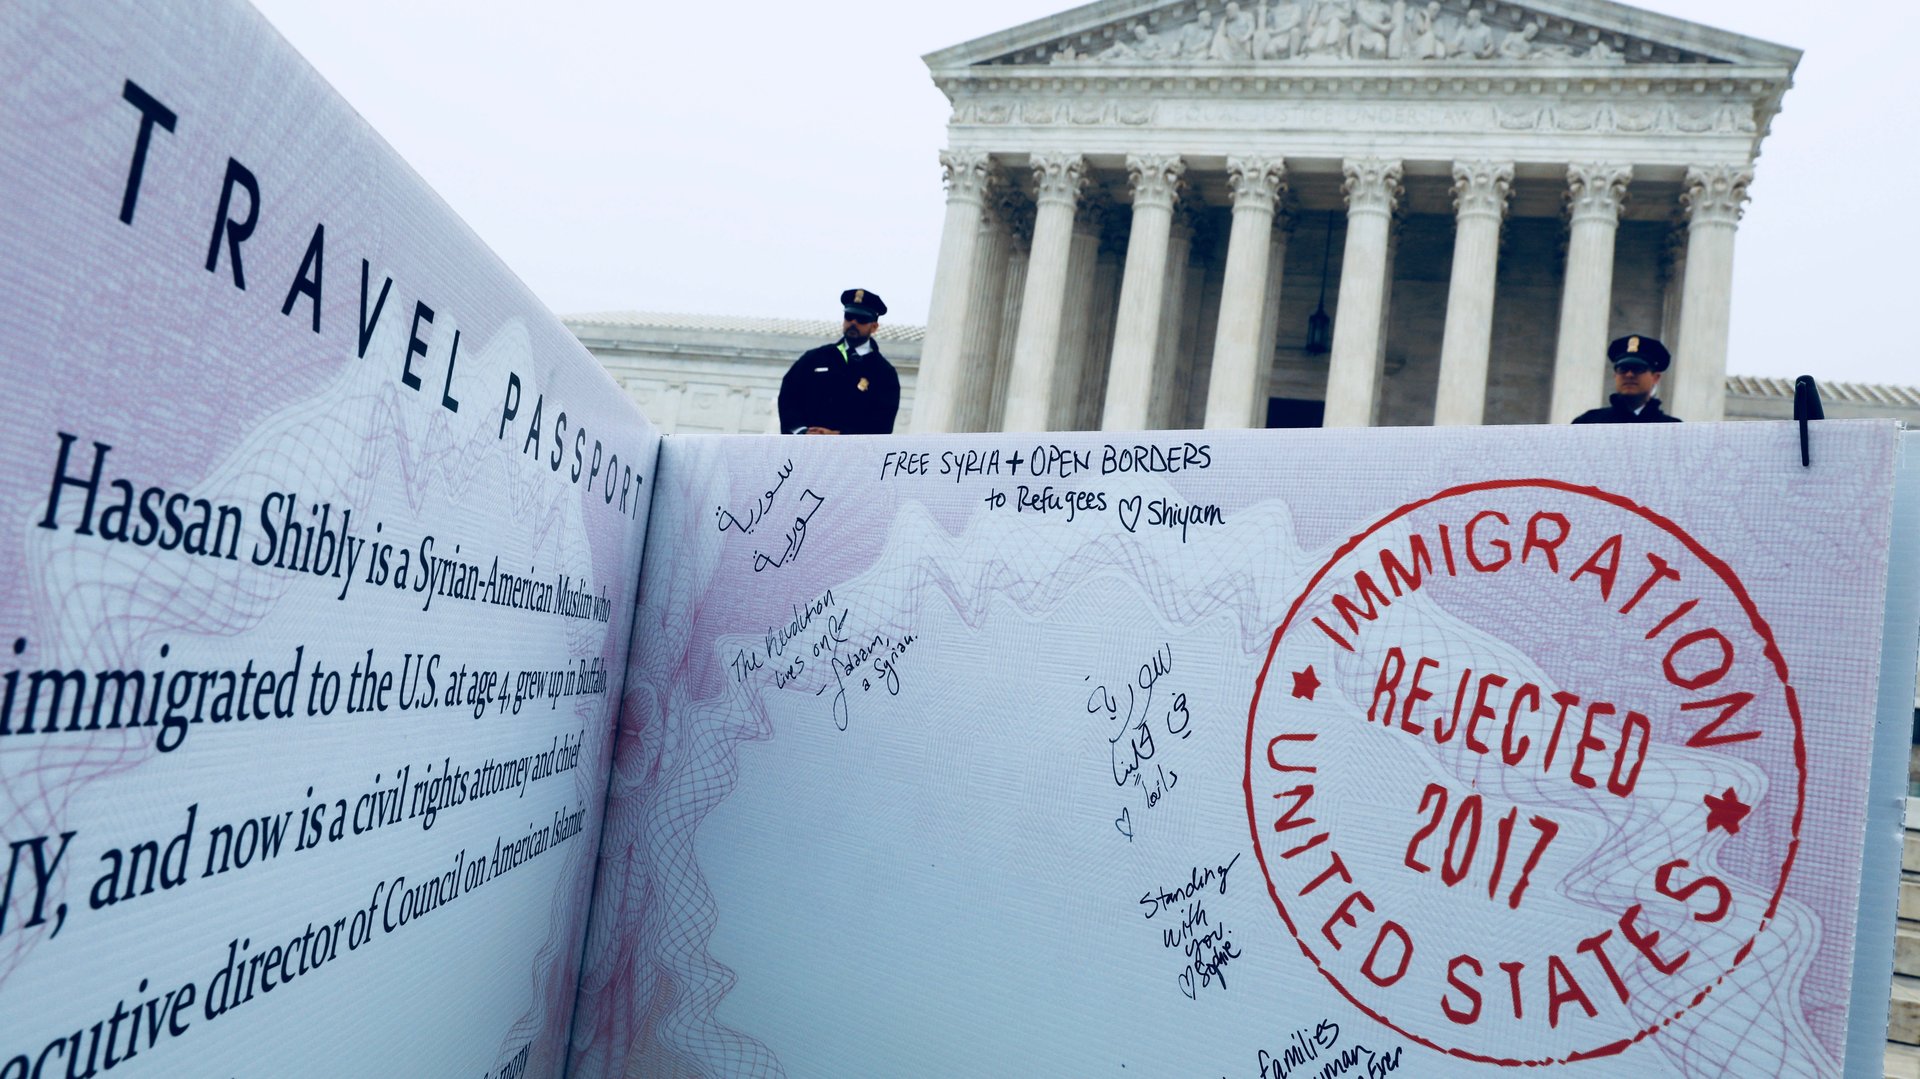 EQUAL JUSTICE UNDER LAW
TRAVEL PASSPORT
Hassan Shibly is a Syrian-American Muslim who
immigrated to the U.S. at age 4, grew up in Buffalo,
NY, and now is a civil rights attorney and chief
executive director of Council on American Islamic
many
سورية
حورية
FREE SYRIA + OPEN BORDERS
to Refugees ♡ Shiyam
The Revolution
lives on
- Salaam,
a Syrian.
سورية
في قلبنا
♡
Standing
with
you.
♡ Sophie
families
IMMIGRATION
REJECTED
2017
UNITED STATES